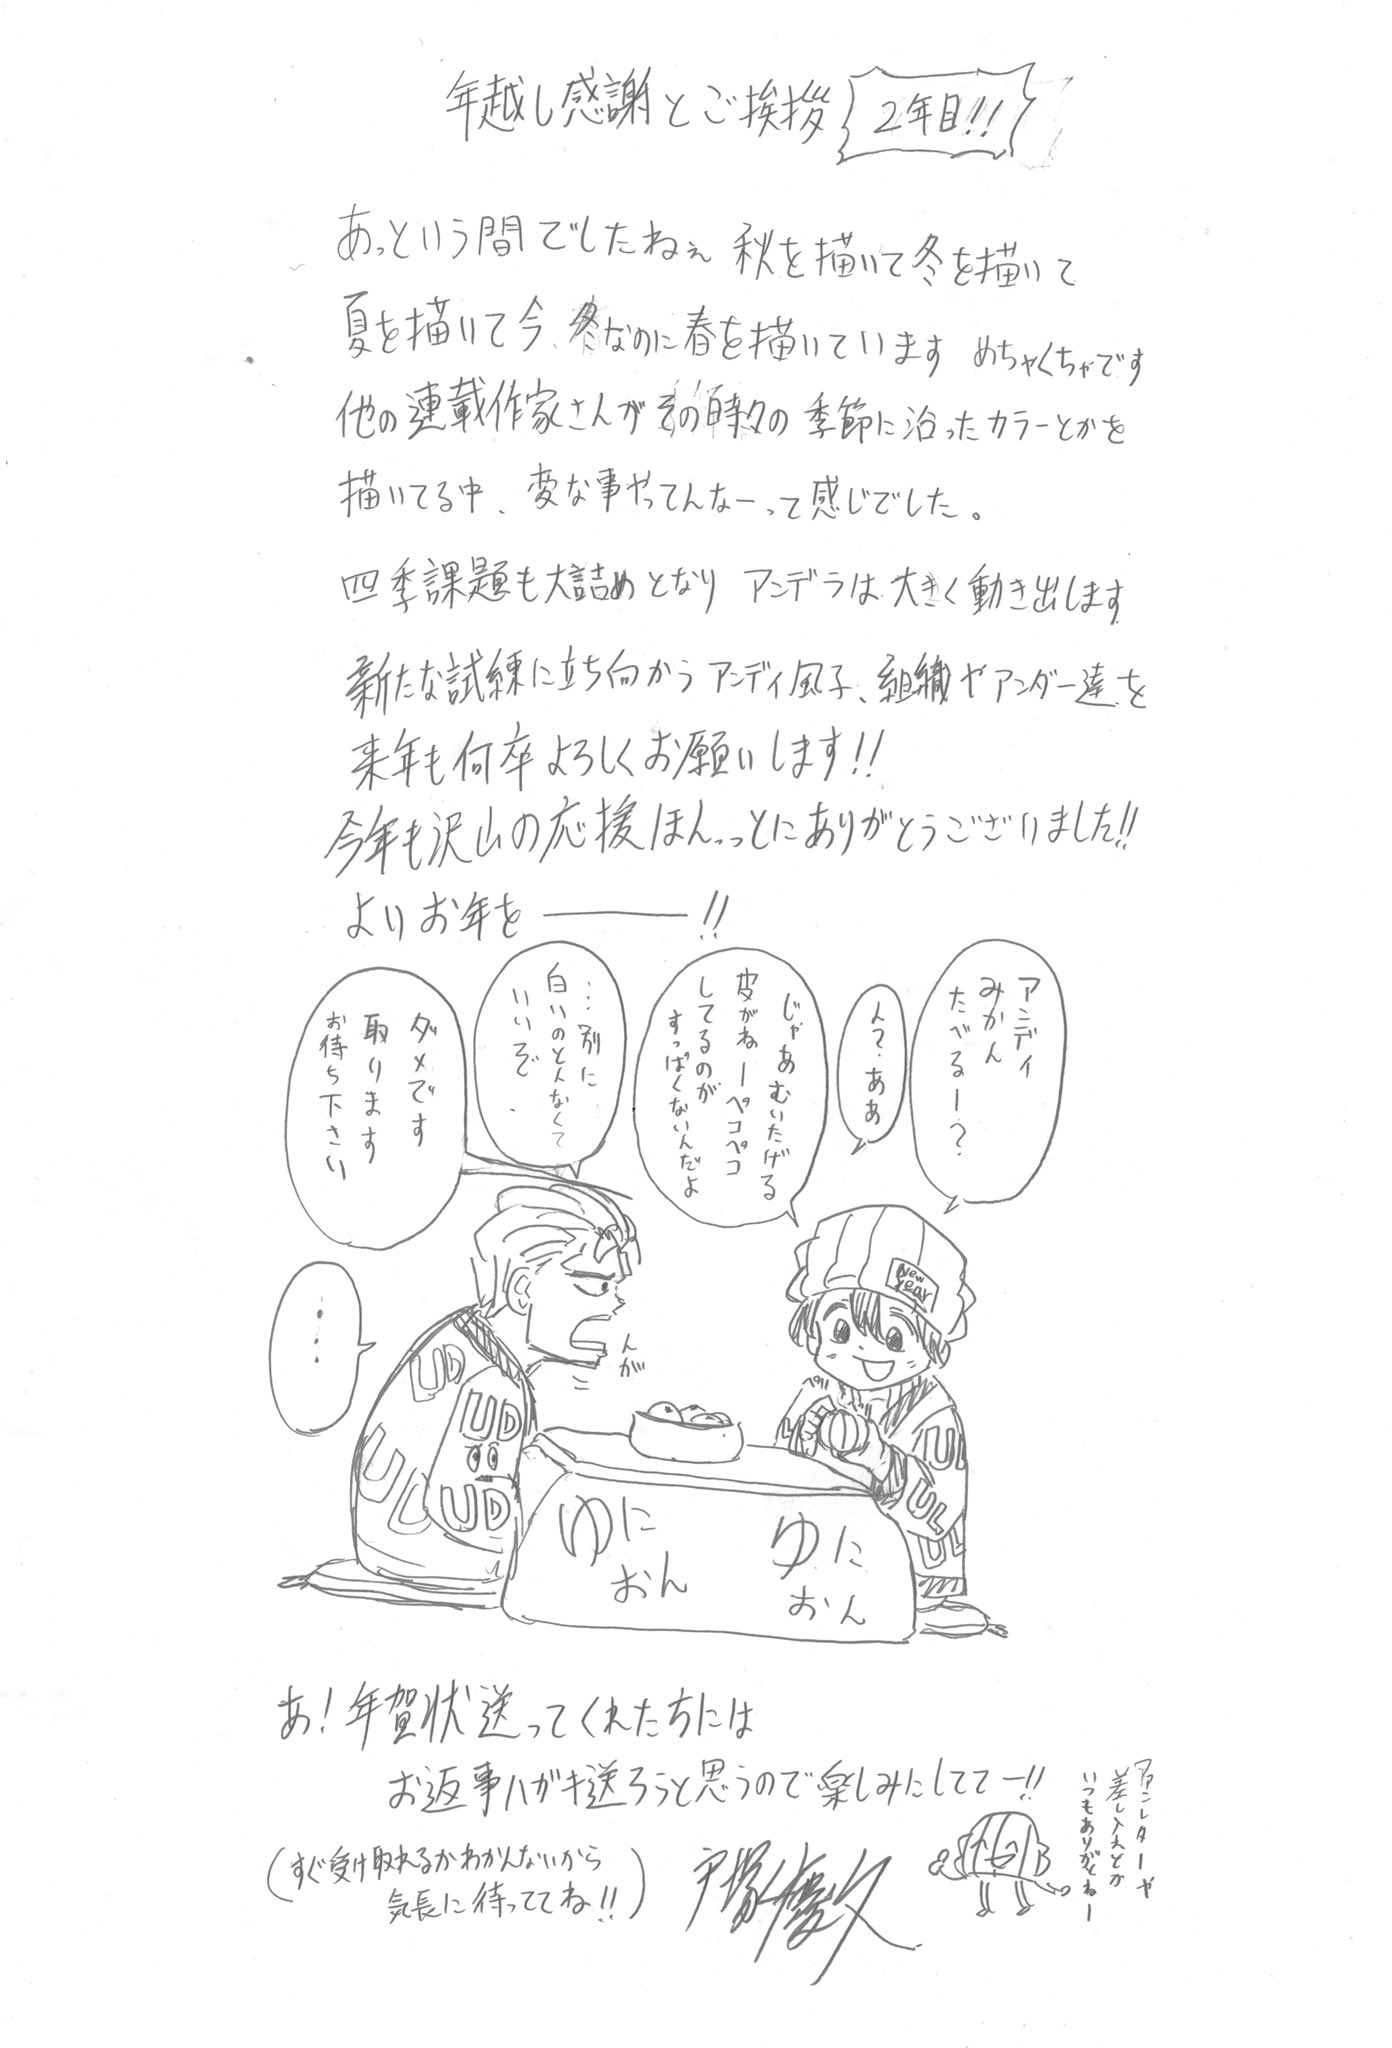 年越し感謝とご挨拶 2年目!!
あっという間でしたねぇ 秋を描いて冬を描いて
夏を描いて今、冬なのに春を描いています めちゃくちゃです
他の連載作家さんがその時々の季節に沿ったカラーとかを
描いてる中、変な事やってんなーって感じでした。
四季課題も大詰めとなり アンデラは大きく動き出します
新たな試練に立ち向かう アンディ風子、組織やアンダー達を
来年も何卒よろしくお願いします!!
今年も沢山の応援ほんっっとにありがとうございました!!
よいお年を――!!
アンディ
みかん
たべるー?
ん?ああ
じゃあむいたげる
皮がねーペコペコ
してるのが
すっぱくないんだよ
…別に
白いのとんなくて
いいぞ
ダメです
取ります
お待ち下さい
…
New
Year
んが
UD
UD
UD
UD
UD
UL
UL
UL
ゆに
おん
ゆに
おん
あ!年賀状送ってくれたちには
お返事ハガキ送ろうと思うので楽しみにしててー!!
(すぐ受け取れるかわかんないから
気長に待っててね!!)
戸塚慶文
ファンレターや
差し入れとか
いつもありがとねー